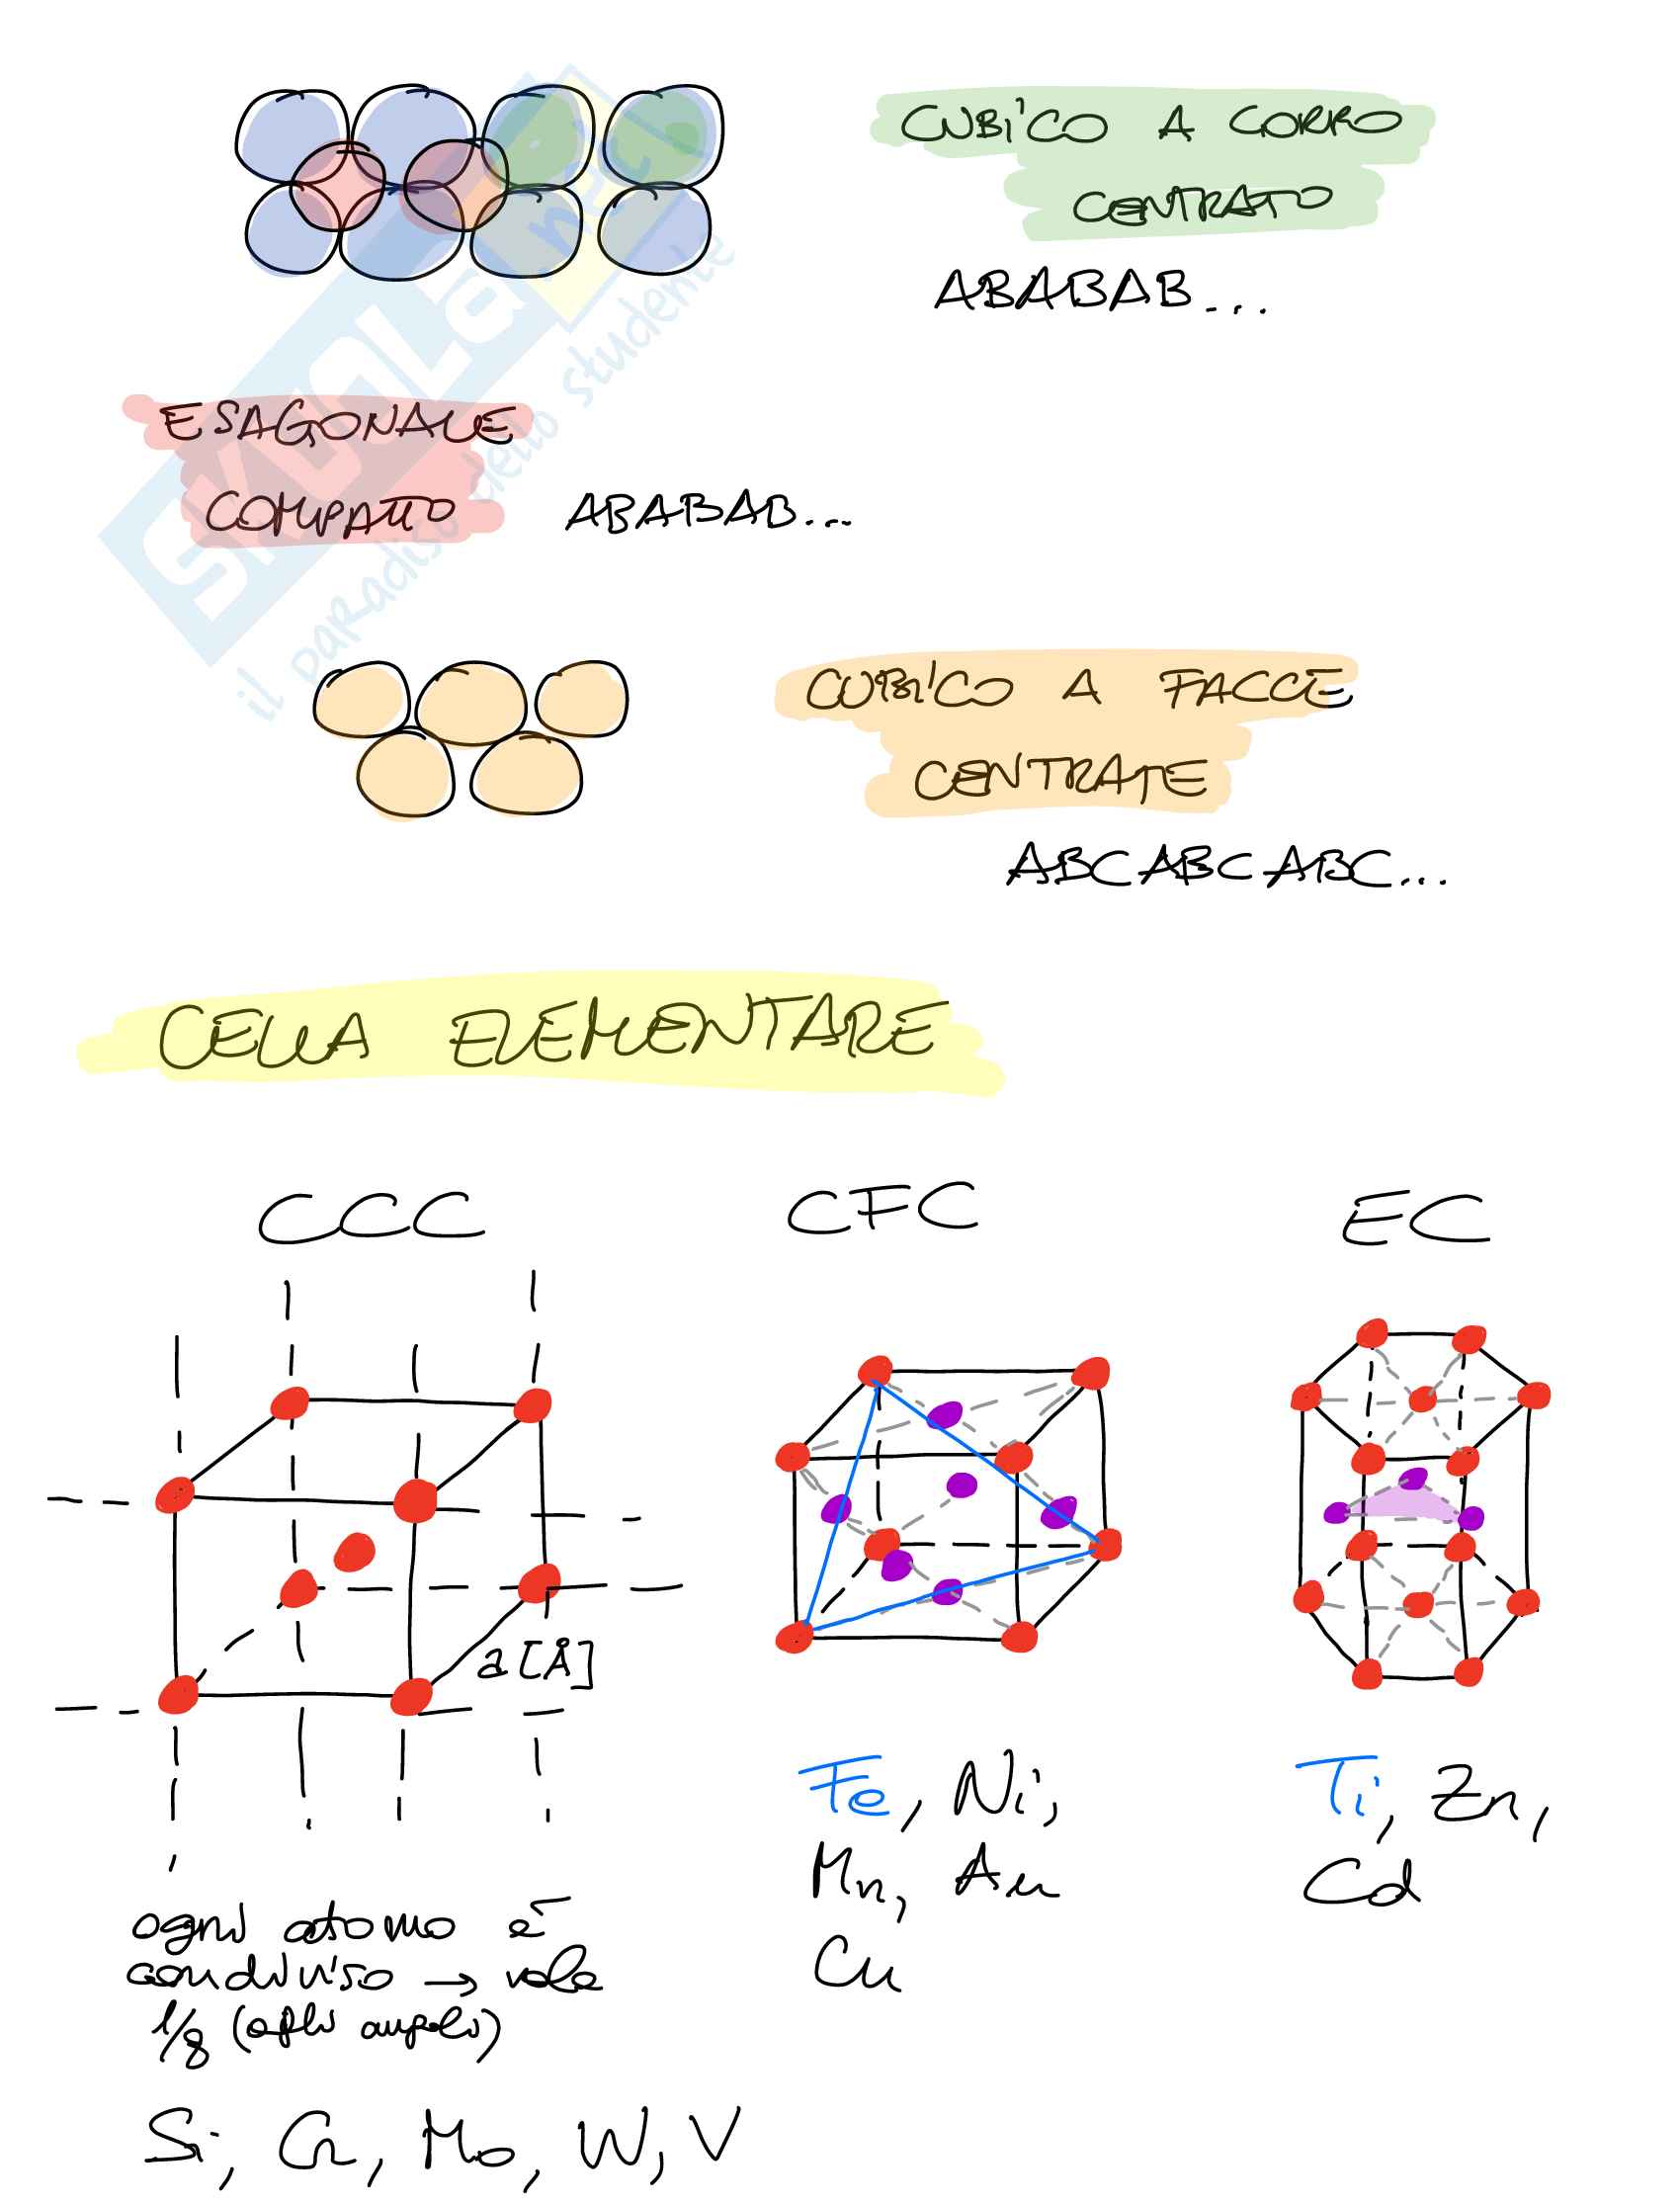 CUBICO A CORPO
CENTRATO
ABABAB...
ESAGONALE
COMPATTO ABABAB...
SKUOLa.net
il paradiso dello studente
CUBICO A FACCE
CENTRATE
ABCABCABC...
CELLA ELEMENTARE
CCC CFC EC
a [Å]
Fe, Ni,
Mn, Au
Cu
Ti, Zn,
Cd
ogni atomo è
condiviso → vale
1/8 (agli angoli)
Si, Cr, Mo, W, V